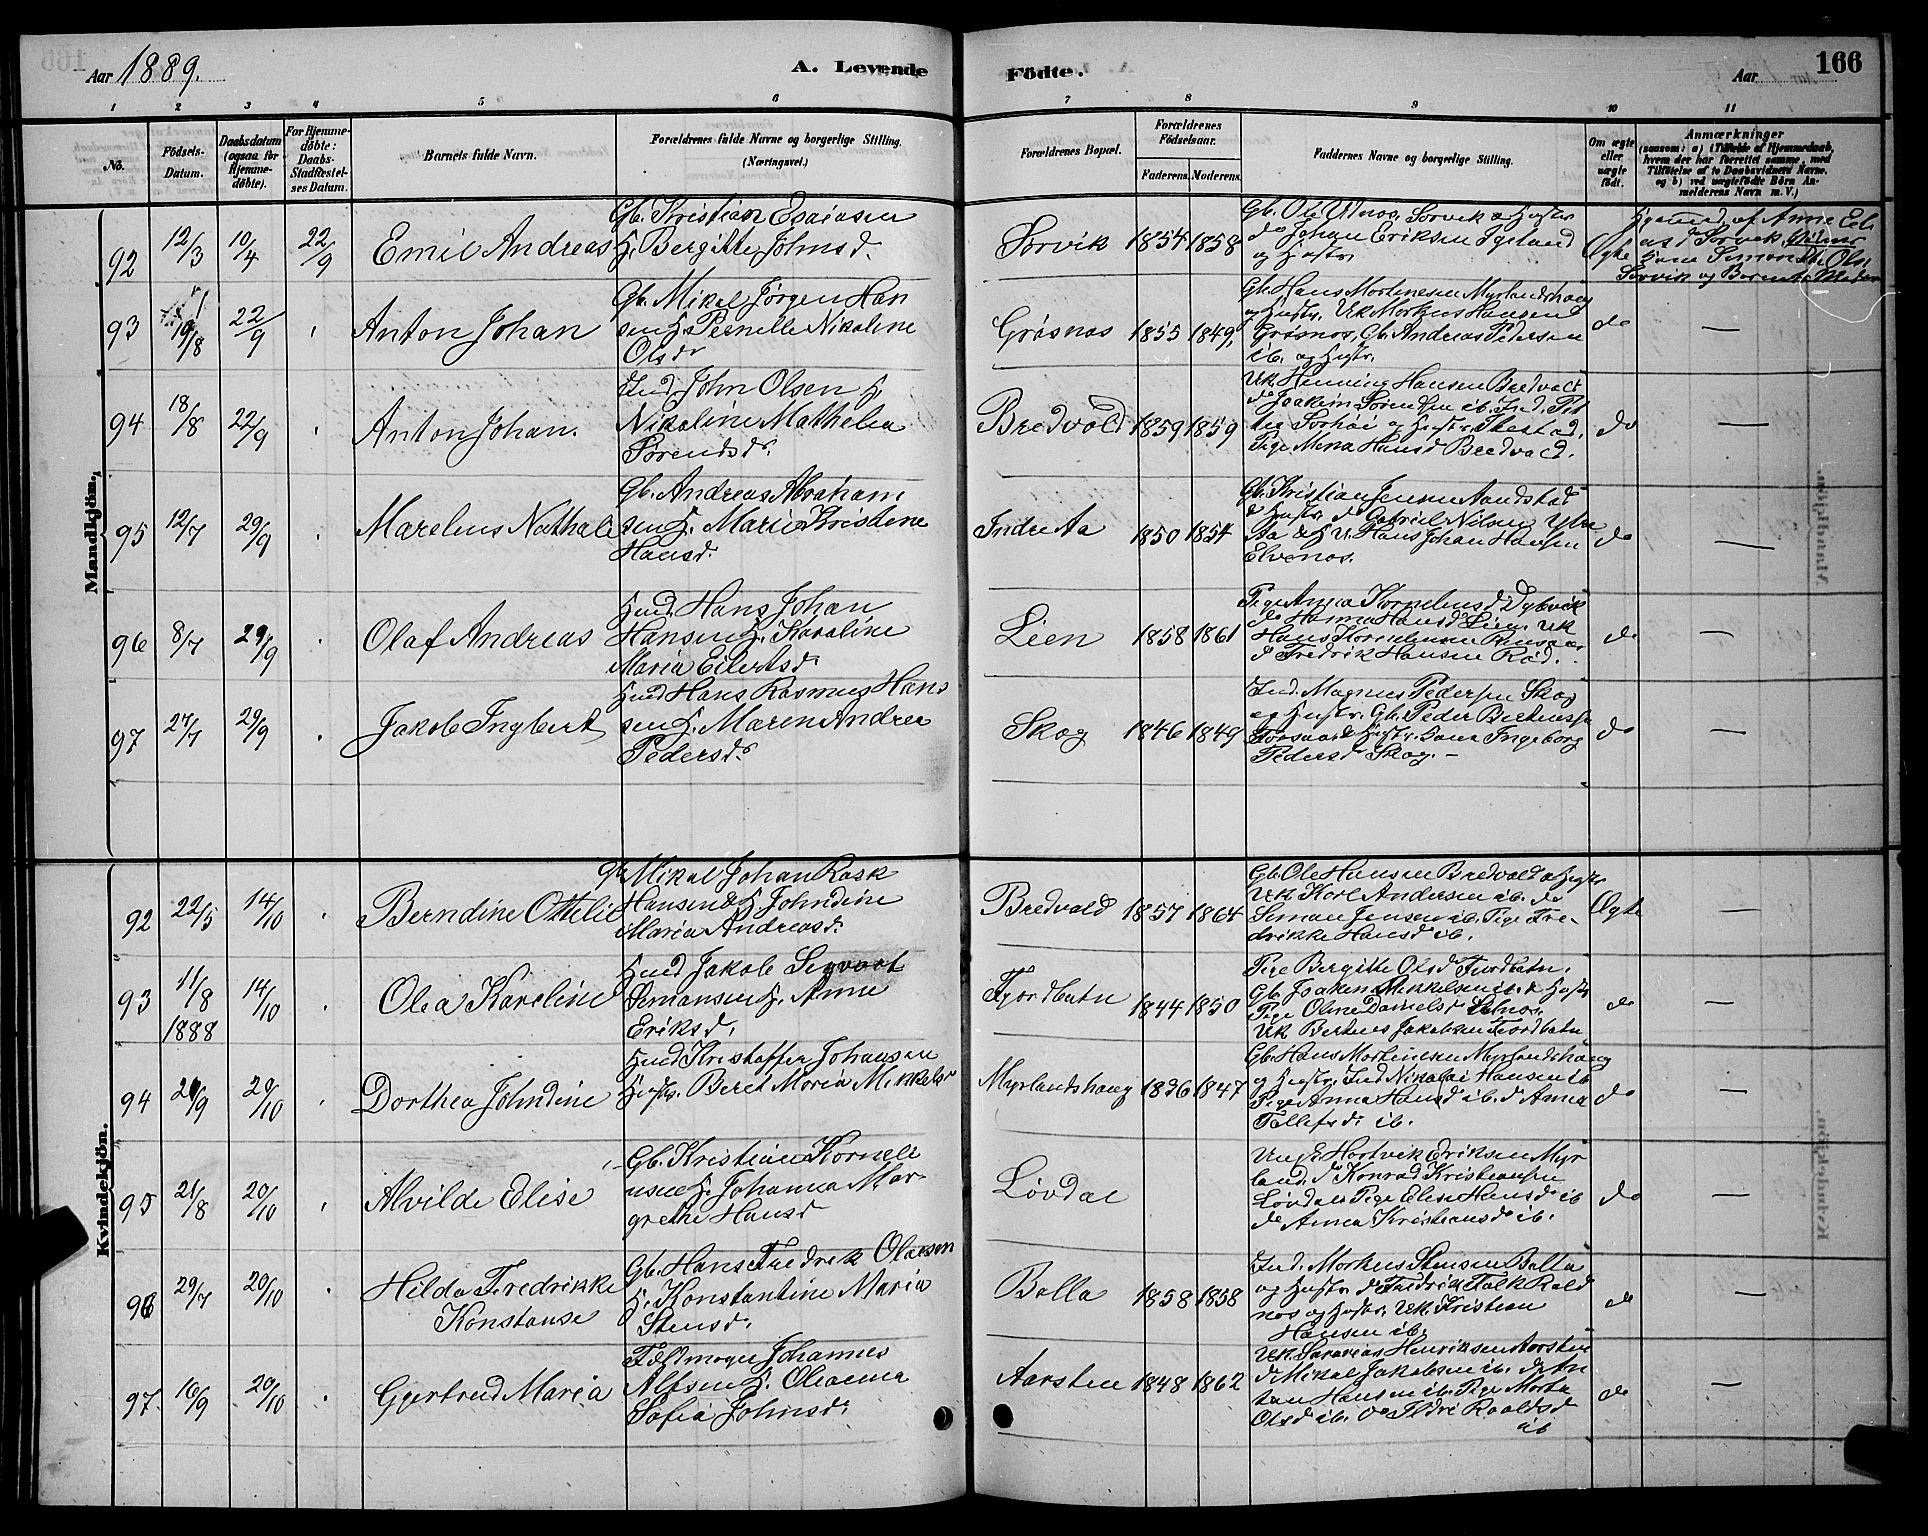 Aar 1889. A. Levende Födte. Aar 166
1 2 3 4 5 6 7 8 9 10 11
No. Födsels-Datum. Daabsdatum (ogsaa for Hjemmedøbte). For Hjemmedøbte: Daabs-Stadfæstelses Datum. Barnets fulde Navn. Forældrenes fulde Navne og borgerlige Stilling. (Næringsvei.) Forældrenes Bopæl. Forældrenes Födselsaar. Faderens. Moderens. Faddernes Navne og borgerlige Stilling. Om ægte eller uægte født. Anmærkninger (saasom: a) Tilfælde af Hjemmedaab, hvem der har forrettet samme, med Tilföielse af to Daabsvidners Navne, og b) ved uægtefödte Börn Anmelderens Navn m. V.)
Mandkjön.
92 12/3 10/4 22/9 Emil Andreas
Gb. Kristian Esaiasen
H. Bergitte Johnsd.
Sørvik 1854 1858
Gb. Ole Utnos, Sørvik og Hustr
do Johan Eriksen Igeland
og Hustr.
Ægte
Hjemmed. af Anne
Sørvik
Sørvik og
93 19/8 22/9 Anton Johan
Gb. Mikal Jørgen Han
sen H Pernelle Nikoline
Olsdr
Grøsnos 1855 1849,
Gb. Hans Mortinesen Myrlandshaug
og Hustr. Uk Morkus Hansen
Grøsnos, Gb. Andreas Pedersen
ib. og Hustr.
do —
94 18/8 22/9 Anton Johan.
Ind John Olsen H
Nikoline Mathelia
Sørensdr.
Bredvold 1859 1859
Uk. Henning Hansen Bredvold
do Joakim Sørensen ib. Ind. Pet
og Hustr.
Pige Mena Hansd Bredvold.
do —
95 12/7 29/9 Marelius Nathali
Gb. Andreas Abraham
sen H. Marie Kristine
Hansd.
Indre Aa 1850 1854
Gb. Kristian Jensen Aandstad
og Hustr. do Gabriel Nilsen Ytre
Aa og H Uk. Hans Johan Hansen
Elvenos.
do —
96 8/7 29/9 Olaf Andreas
Hmd. Hans Johan
Hansen H. Karoline
Maria Eilertsd.
Lien 1858 1861
Pige Anna Kornelius d Dybvik
do Hanna Hansd Lien. Uk
Hans Kornelinsen
do Fredrik Hansen Rød.
do —
97 27/7 29/9 Jakob Ingbert
Hmd Hans Rasmus Han
sen H. Maren Andrea
Pedersdr.
Skog 1846 1849
Ind. Magnus Pedersen Skog
og Hustr. Gb. Peder
Hustr. Ingeborg
Pedersd Skog. —
do —
Kvindekjön.
92 22/5 14/10 Berndine Ottilie
Gb Mikal Johan Rask
Hansen H Johndine
Maria Andreasd.
Bredvold 1857 1864
Gb. Ole Hansen Bredvold og Hustr
Uk Karl Andersen ib. do
Simon Jensen ib. Pige Fre-
drikke Hansd ib.
Ægte —
93 11/8 1888 14/10 Olea Karoline
Hmd Jakob
Simonsen H. Anne
Eriksd.
Fjordbotn 1844 1850
Pige Bergitte Olsd Fjordbotn.
Gb. Joakim Mikkelsen ib. og Hustr
Pige Oline Danielsd
Uk Berteus Jakobsen Fjordbotn
do —
94 21/9 20/10 Dorthea Johndine
Hmd Kristoffer Johansen
Hustr. Beret Maria Mikkelsdr
Myrlandshaug 1836 1847
Gb. Hans Mortinesen Myrlandshaug
og Hustr. Ind Nikolai Hansen ib
Pige Anna Hansd ib. do Anna
Tollefsd ib.
do —
95 21/8 20/10 Alvilde Elise
Gb. Kristian Korneli
usen H. Johanna Mar-
grethe Hansd
Løvdal
Unge Hartvik Eriksen Myr
land. do Konrad Kristiansen
Løvdal Pige Elise Hansd ib
do Anna Kristiansd ib.
do —
96 29/7 20/10 Hilda Fredrikke
Konstanse
Gb. Hans Fredrik Olaisen
H. Konstantine Maria
Stensd.
Bolla 1858 1858
Ind. Morkus Stensen Bolla
og Hustr. do Fredrik Falk
nos og Hustr. Uk. Kristian
Hansen ib.
do —
97 16/9 20/10 Gjertrud Maria
Johannes
Alfsen H. Oleanna
Sofia Johnsd.
Aarsten 1848 1862
Uk. Henriksen Aarsten
do Mikal Jakobsen ib. do An
ton Hansen ib. Pige Marta
Olsd ib. do Roaldsd
ib
do —